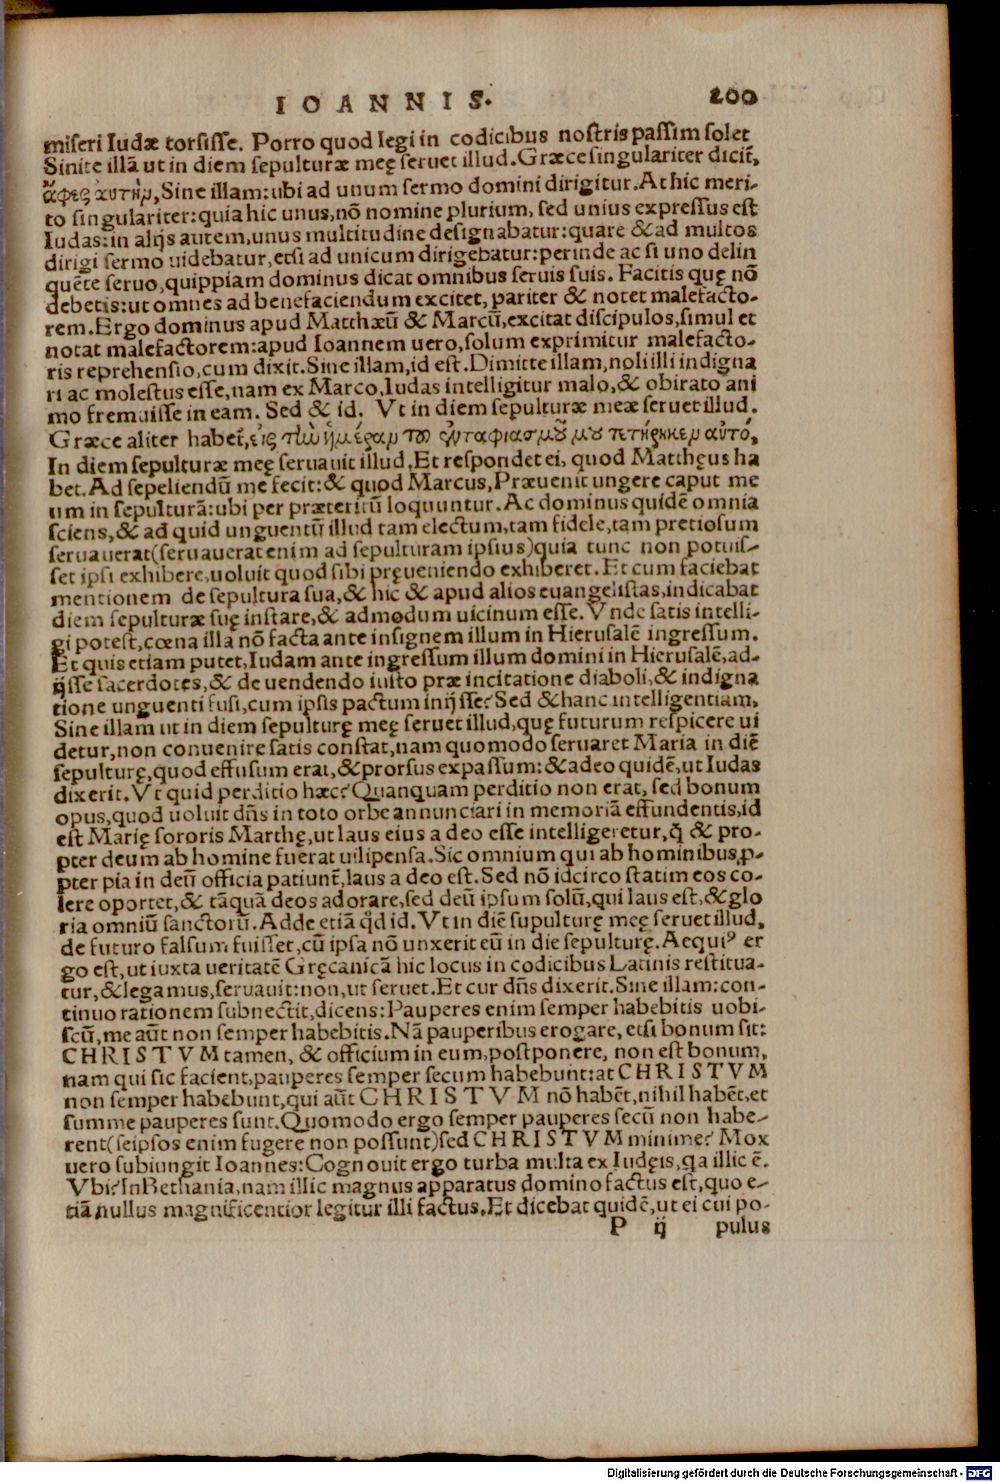 IOANNIS.
200
miseri Iudæ torsisse. Porro quod legi in codicibus nostris passim solet
Sinite illā ut in diem sepulturæ meę seruet illud. Græce singulariter dicit̃,
ἄφες αὐτὴν, Sine illam: ubi ad unum sermo domini dirigitur. At hic meri-
to singulariter: quia hic unus, nō nomine plurium, sed unius expressus est
Iudas: in alijs autem, unus multitudine designabatur: quare & ad multos
dirigi sermo uidebatur, etsi ad unicum dirigebatur: perinde ac si uno delin
quēte seruo, quippiam dominus dicat omnibus seruis suis. Facitis quę nō
debetis: ut omnes ad benefaciendum excitet, pariter & notet malefacto-
rem. Ergo dominus apud Matthæū & Marcū, excitat discipulos, simul et
notat malefactorem: apud Ioannem uero, solum exprimitur malefacto-
ris reprehensio, cum dixit. Sine illam, id est. Dimitte illam, noli illi indigna
ri ac molestus esse, nam ex Marco, Iudas intelligitur malo, & obirato ani
mo fremuisse in eam. Sed & id. Vt in diem sepulturæ meæ seruet illud.
Græce aliter habet̃, εἰς τὴν ἡμέραν τοῦ ἐνταφιασμοῦ μου τετήρηκεν αὐτό,
In diem sepulturæ meę seruauit illud, Et respondet ei, quod Matthęus ha
bet. Ad sepeliendū me fecit: & quod Marcus, Præuenit ungere caput me
um in sepulturā: ubi per præteritū loquuntur. Ac dominus quidē omnia
sciens, & ad quid unguentū illud tam electum, tam fidele, tam pretiosum
seruauerat (seruauerat enim ad sepulturam ipsius) quia tunc non potuis-
set ipsi exhibere, uoluit quod sibi pręueniendo exhiberet. Et cum faciebat
mentionem de sepultura sua, & hic & apud alios euangelistas, indicabat
diem sepulturæ suę instare, & admodum uicinum esse. Vnde satis intelli-
gi potest, cœna illa nō facta ante insignem illum in Hierusalē ingressum.
Et quis etiam putet, Iudam ante ingressum illum domini in Hierusalē, ad-
ijsse sacerdotes, & de uendendo iusto præ incitatione diaboli, & indigna
tione unguenti fusi, cum ipsis pactum inijsse? Sed & hanc intelligentiam,
Sine illam ut in diem sepulturę meę seruet illud, quę futurum respicere ui
detur, non conuenire satis constat, nam quomodo seruaret Maria in diē
sepulturę, quod effusum erat, & prorsus expassum: & adeo quidē, ut Iudas
dixerit. Vt quid perditio hæc? Quanquam perditio non erat, sed bonum
opus, quod uoluit dñs in toto orbe annunciari in memoriā effundentis, id
est Marię sororis Marthę, ut laus eius a deo esse intelligeretur, q̄ & pro-
pter deum ab homine fuerat uilipensa. Sic omnium qui ab hominibus, p̱-
pter pia in deū officia patiunt̃, laus a deo est. Sed nō idcirco statim eos co-
lere oportet, & tāquā deos adorare, sed deū ipsum solū, qui laus est, & glo
ria omniū sanctorū. Adde etiā q̇d id. Vt in diē supulturę meę seruet illud,
de futuro falsum fuisset, cū ipsa nō unxerit eū in die sepulturę. Aequiꝰ er
go est, ut iuxta ueritatē Gręcanicā hic locus in codicibus Latinis restitua-
tur, & legamus, seruauit: non, ut seruet. Et cur dñs dixerit. Sine illam: con-
tinuo rationem subnectit, dicens: Pauperes enim semper habebitis uobi-
scū, me aūt non semper habebitis. Nā pauperibus erogare, etsi bonum sit:
CHRISTVM tamen, & officium in eum, postponere, non est bonum,
nam qui sic facient, pauperes semper secum habebunt: at CHRISTVM
non semper habebunt, qui aūt CHRISTVM nō habēt, nihil habēt, et
summe pauperes sunt. Quomodo ergo semper pauperes secū non habe-
rent (seipsos enim fugere non possunt) sed CHRISTVM minime? Mox
uero subiungit Ioannes: Cognouit ergo turba multa ex Iudęis, qa illic ē.
Vbi? In Bethania, nam illic magnus apparatus domino factus est, quo e-
tiā nullus magnificentior legitur illi factus. Et dicebat quidē, ut ei cui po-
P ij
pulus
Digitalisierung gefördert durch die Deutsche Forschungsgemeinschaft - DFG